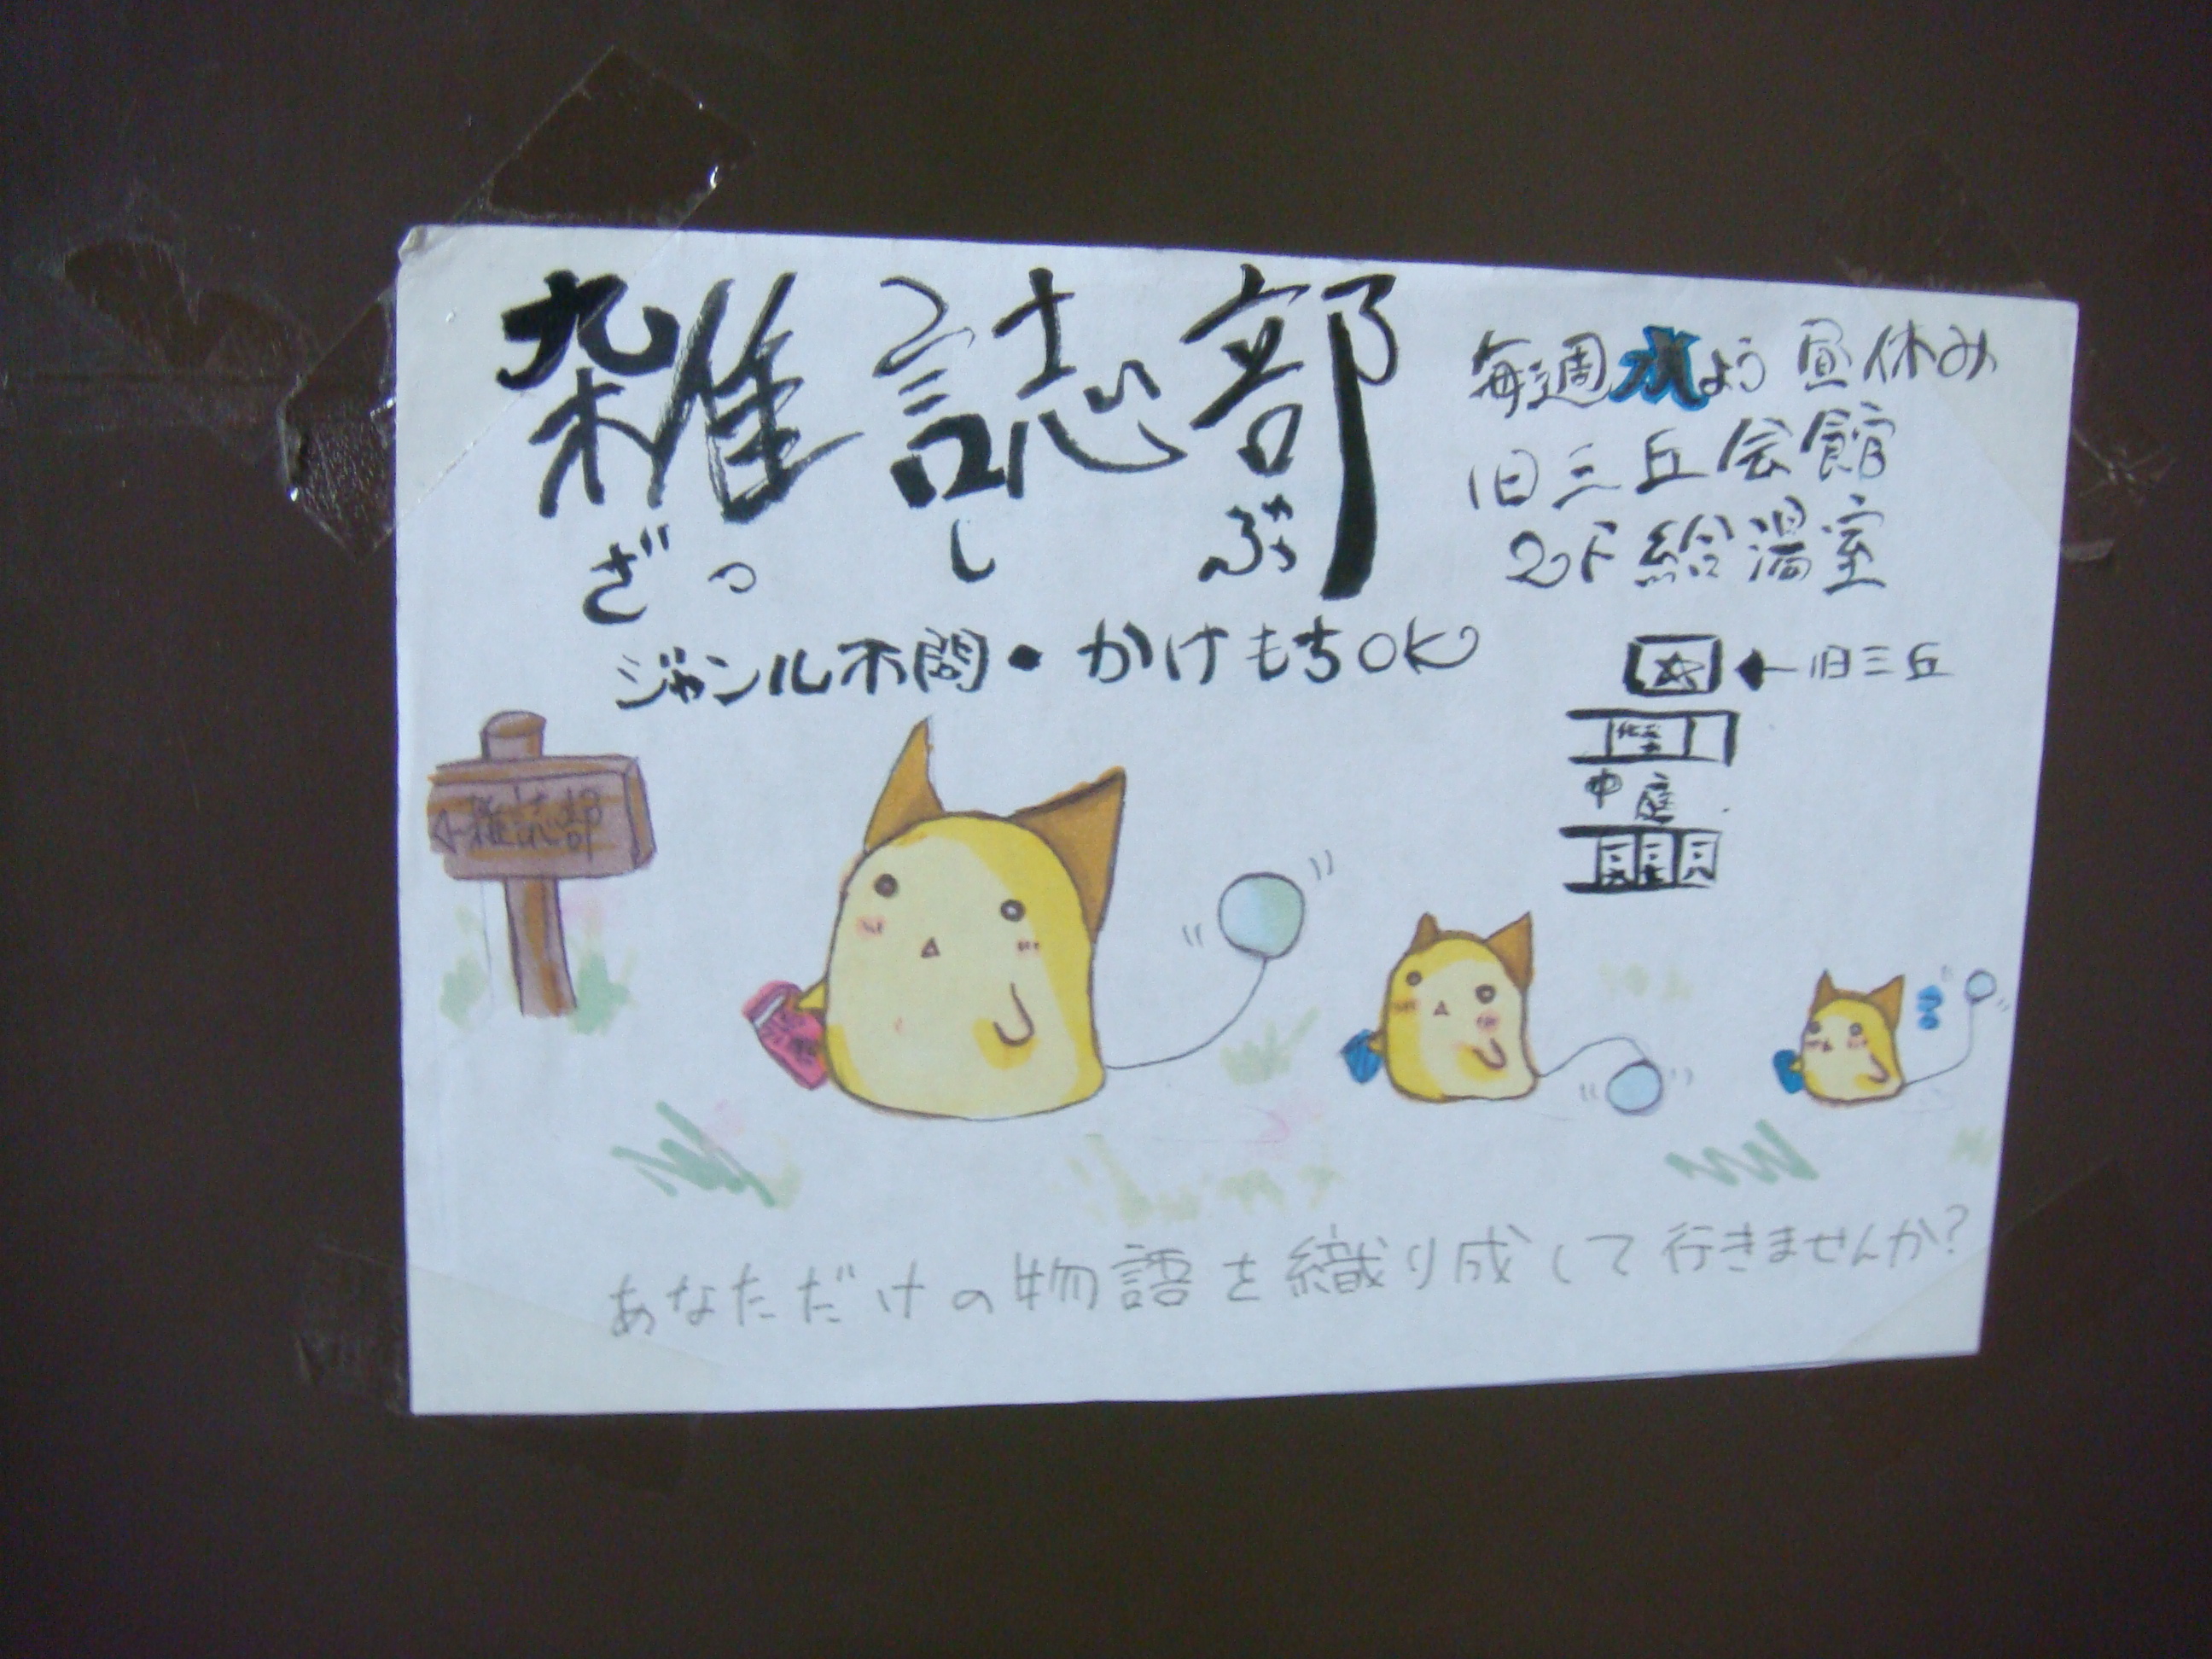 雑誌部
ざっしぶっ
ジャンル不問・かけもちOK
毎週水よう昼休み
旧三丘会館
2F給湯室
←旧三丘
中庭
←雑誌部
あなただけの物語を織り成して行きませんか?